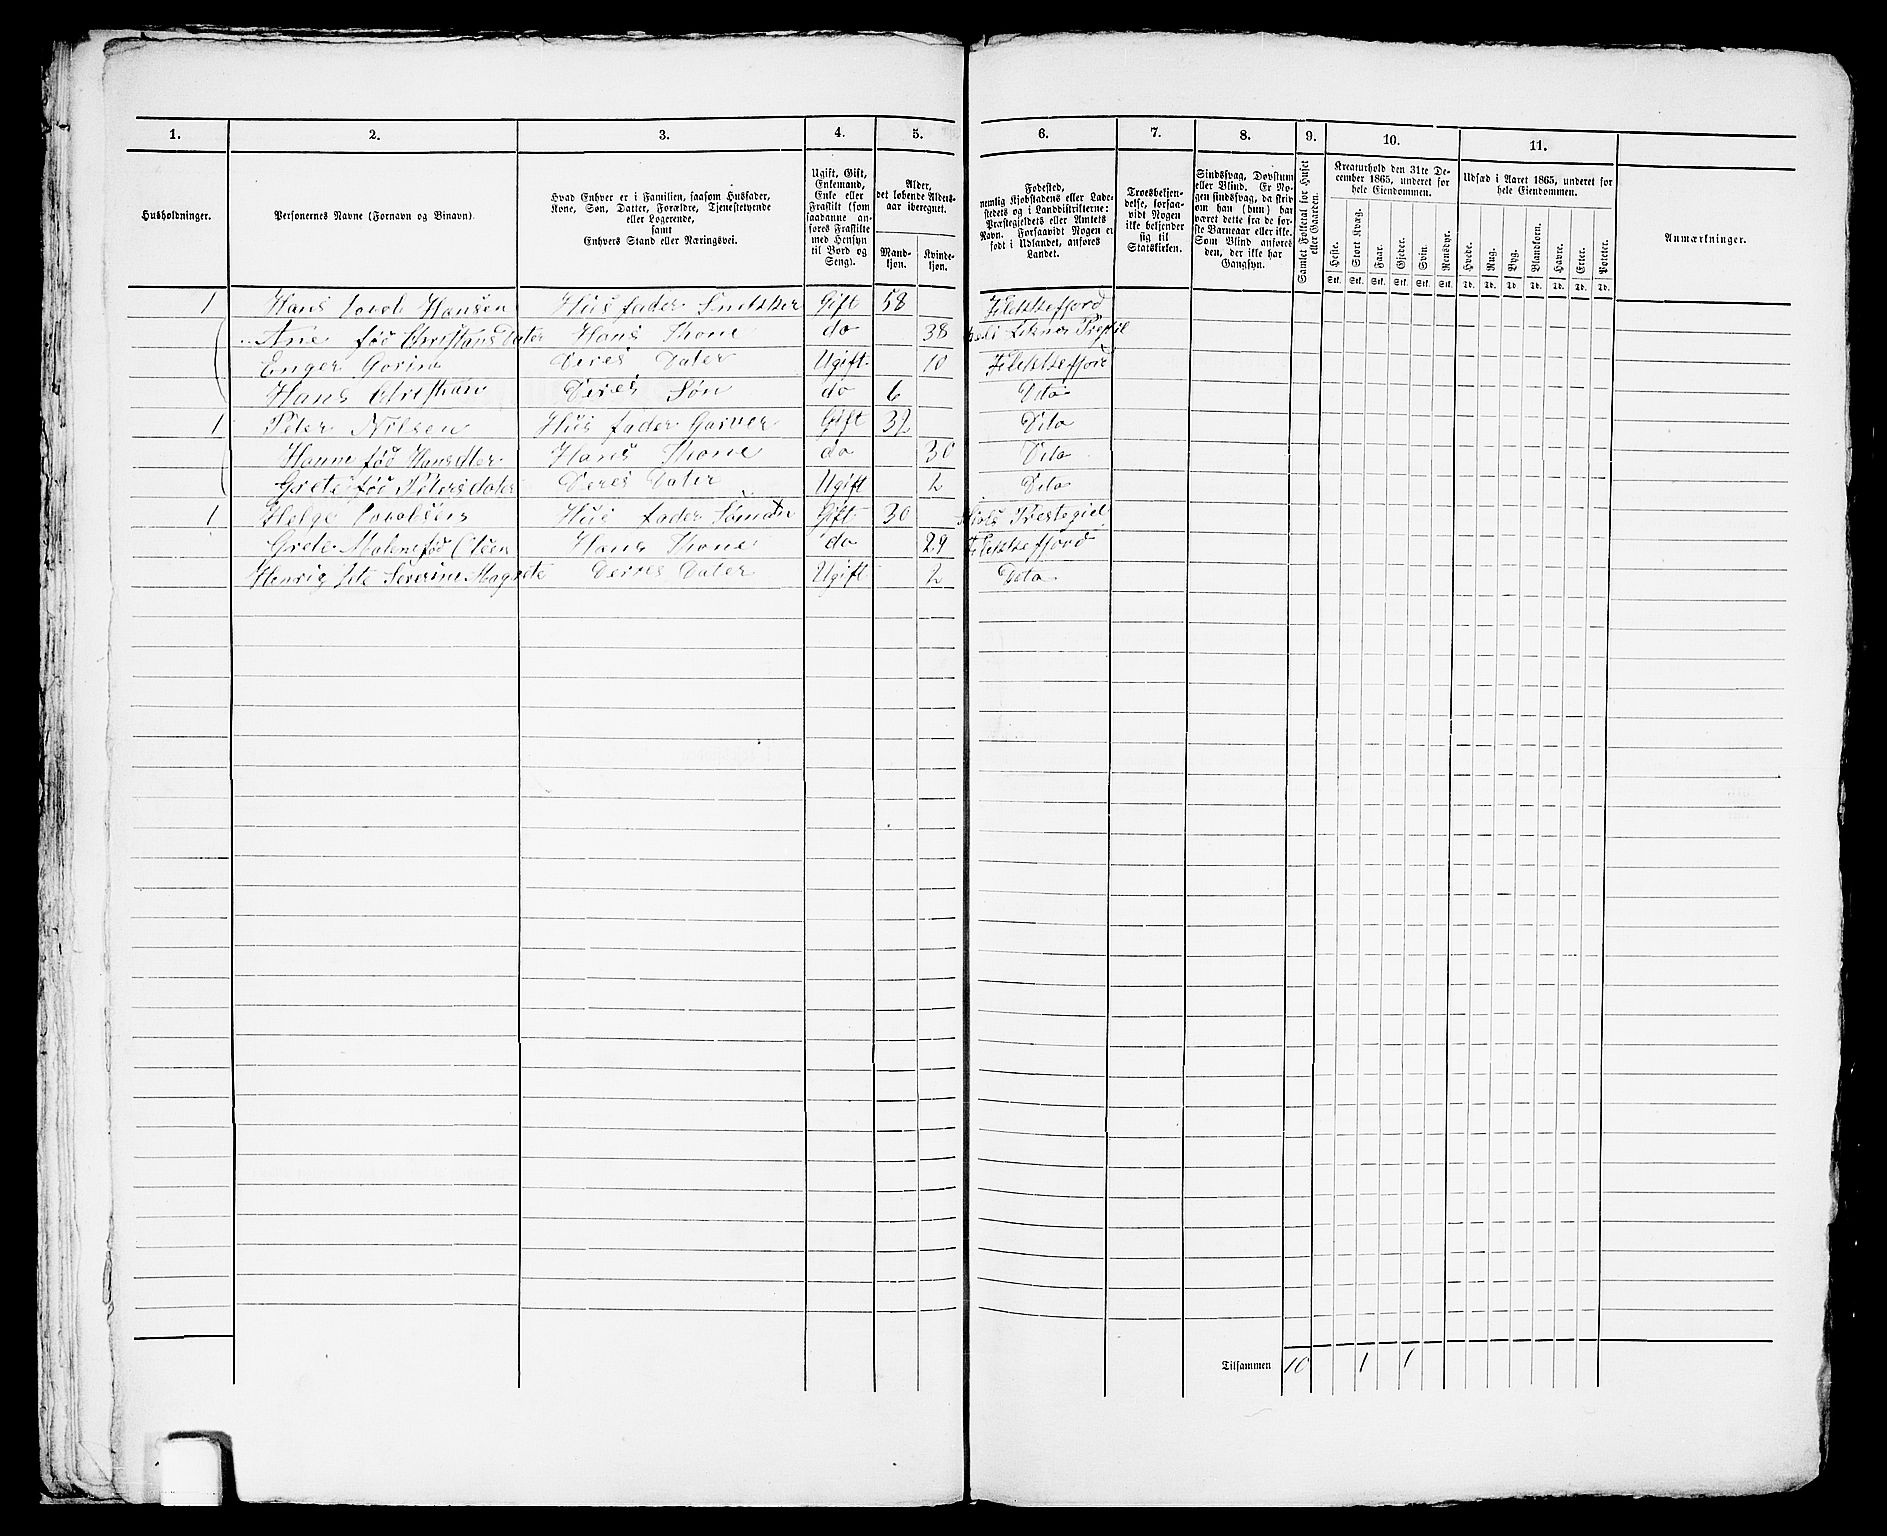 1. 2. 3. 4. 5. 6. 7. 8. 9. 10. 11.
Husholdninger.
Personernes Navne (Fornavn og Binavn).
Hvad Enhver er i Familien, saasom Husfader,
Kone, Søn, Datter, Forældre, Tjenestetyende
eller Logerende,
samt
Enhvers Stand eller Næringsvei.
Ugift, Gift,
Enkemand,
Enke eller
Fraskilt (som
saadanne an-
føres Fraskilte
med Hensyn
til Bord og
Seng).
Alder,
det løbende Alders-
aar iberegnet.
Mand-
kjøn.
Kvinde-
kjøn.
Fødested,
nemlig Kjøbstadens eller Lade-
stedets og i Landdistrikterne:
Præstegjeldets eller Amtets
Navn. Forsaavidt Nogen er
født i Udlandet, anføres
Landet.
Troesbekjen-
delse, forsaa-
vidt Nogen
ikke bekjender
sig til
Statskirken.
Sindssvag, Døvstum
eller Blind. Er No-
gen sindssvag, da skriv
om han (hun) har
været dette fra de før-
ste Barneaar eller ikke.
Som Blind anføres
den, der ikke har
Gangsyn.
Samlet Folketal for Huset
eller Gaarden.
Kreaturhold den 31te De-
cember 1865, underet for
hele Eiendommen.
Heste. Stort Kvæg. Faar. Gjeder. Svin. Rensdyr.
Stk. Stk. Stk. Stk. Stk. Stk.
Udsæd i Aaret 1865, underet for
hele Eiendommen.
Hvede. Rug. Byg. Blandkorn. Havre. Erter. Poteter.
Td. Td. Td. Td. Td. Td. Td.
Anmærkninger.
1 Hans Hansen Husfader Snedker Gift 58 Flekkefjord
Ane fød Christansdater Hans Kone do 38
Enger Gorine Deres Dater Ugift 10 Flekkefjord
Hans Christian Deres Søn do 6 Dito
1 Peter Nilsen Hus fader Garver Gift 32 Dito
Hanne fød Hans Hans Kone do 30 Dito
Grete fød Petersdater Deres Dater Ugift 2 Dito
1 Helge Hus fader Söman Gift 30 Prestegiel
Grete Malene fød Olsen Hans Kone do 29 Flekkefjord
Severine Magrete Deres Dater Ugift 2 Dito
Tilsammen 10 1 1